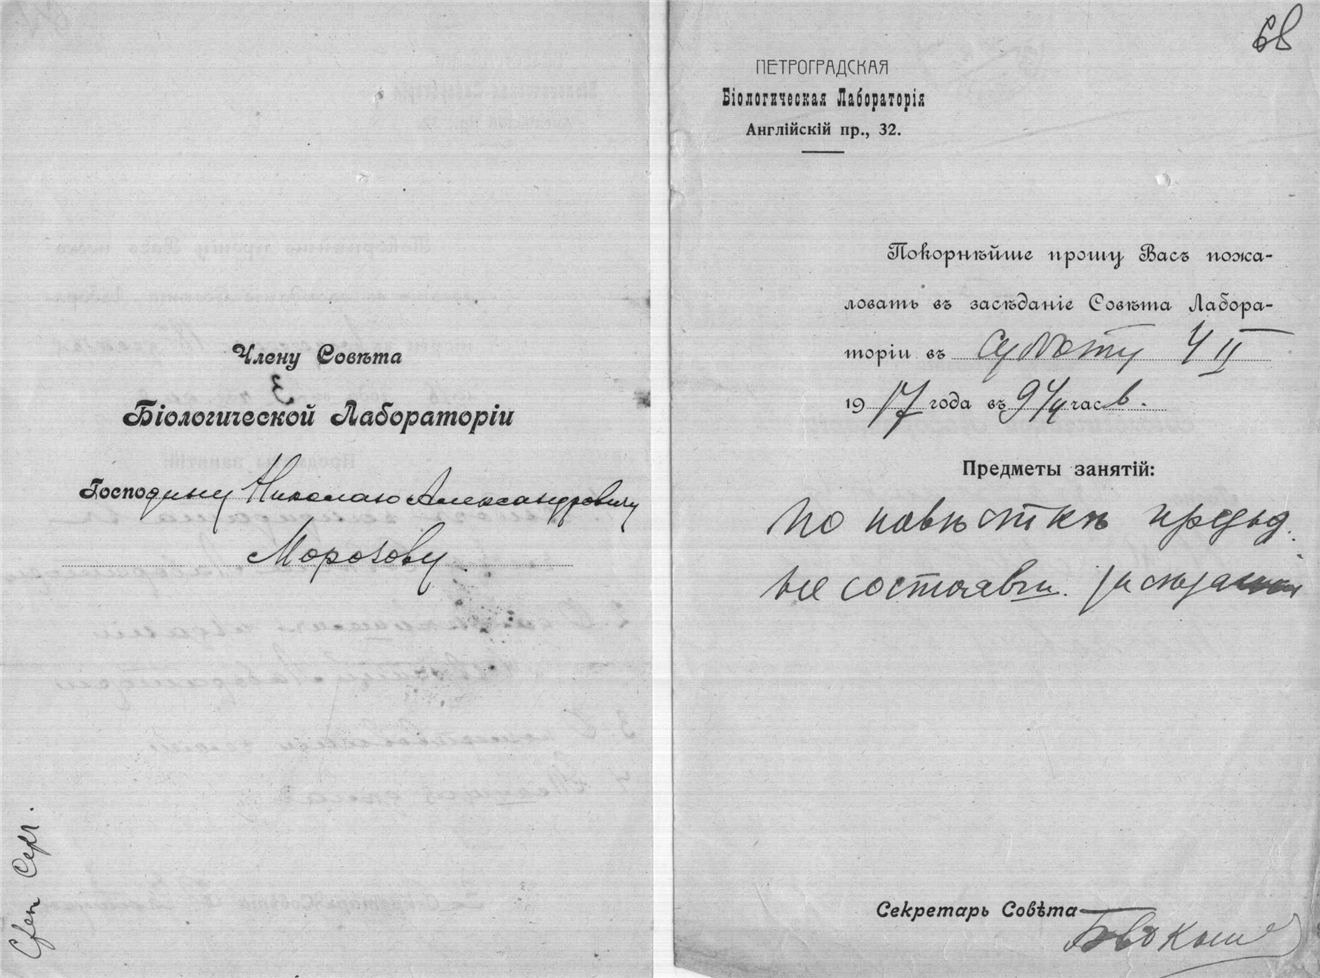 Члену Совѣта
Біологической Лабораторіи
Господину Николаю Александровичу
Морозову.
68
ПЕТРОГРАДСКАЯ
Біологическая Лабораторія
Англійскій пр., 32.
Покорнѣйше прошу Васъ пожа-
ловать въ засѣданіе Совѣта Лабора-
торіи въ субботу 4 II
1917 года въ 9 1/4 час.
Предметы занятій:
по повѣсткѣ предыд.
не состоявш. засѣданія
Секретарь Совѣта